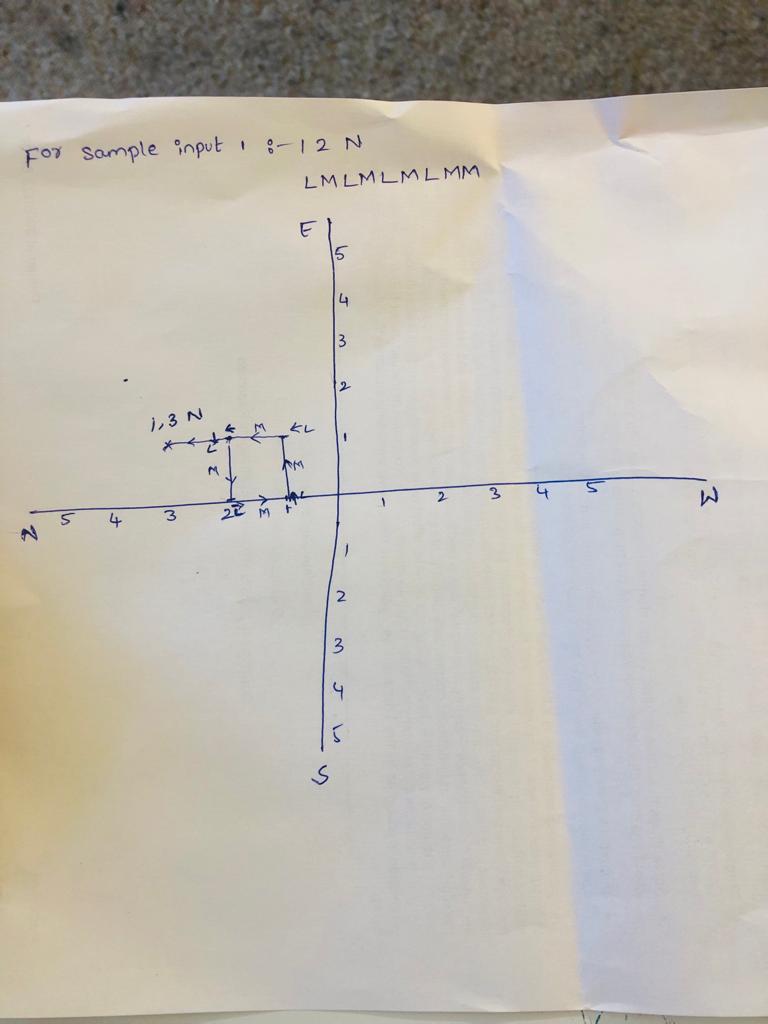 For sample input 1 :- 1 2 N
LMLMLMLMM
E
5
4
3
2
1,3 N
← L
M
1
L
M
M
N 5 4 3 2 L M 1 L 1 2 3 4 5 W
1
2
3
4
5
S